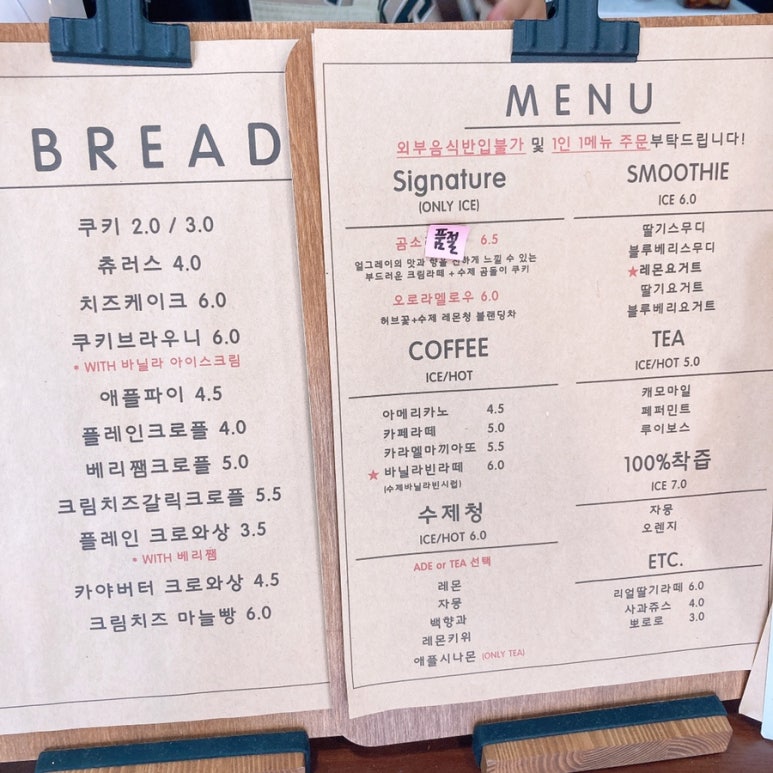 BREAD
쿠키 2.0 / 3.0
츄러스 4.0
치즈케이크 6.0
쿠키브라우니 6.0
* WITH 바닐라 아이스크림
애플파이 4.5
플레인크로플 4.0
베리쨈크로플 5.0
크림치즈갈릭크로플 5.5
플레인 크로와상 3.5
* WITH 베리쨈
카야버터 크로와상 4.5
크림치즈 마늘빵 6.0
MENU
외부음식반입불가 및 1인 1메뉴 주문부탁드립니다!
Signature
(ONLY ICE)
품절 6.5
얼그레이의 맛과 향을 진하게 느낄 수 있는
부드러운 크림라떼 + 수제 곰돌이 쿠키
오로라멜로우 6.0
허브꽃+수제 레몬청 블랜딩차
COFFEE
ICE/HOT
아메리카노 4.5
카페라떼 5.0
카라멜마끼아또 5.5
★ 바닐라빈라떼 6.0
(수제바닐라빈시럽)
수제청
ICE/HOT 6.0
ADE or TEA 선택
레몬
자몽
백향과
레몬키위
애플시나몬 (ONLY TEA)
SMOOTHIE
ICE 6.0
딸기스무디
블루베리스무디
★레몬요거트
딸기요거트
블루베리요거트
TEA
ICE/HOT 5.0
캐모마일
페퍼민트
루이보스
100%착즙
ICE 7.0
자몽
오렌지
ETC.
리얼딸기라떼 6.0
사과쥬스 4.0
뽀로로 3.0